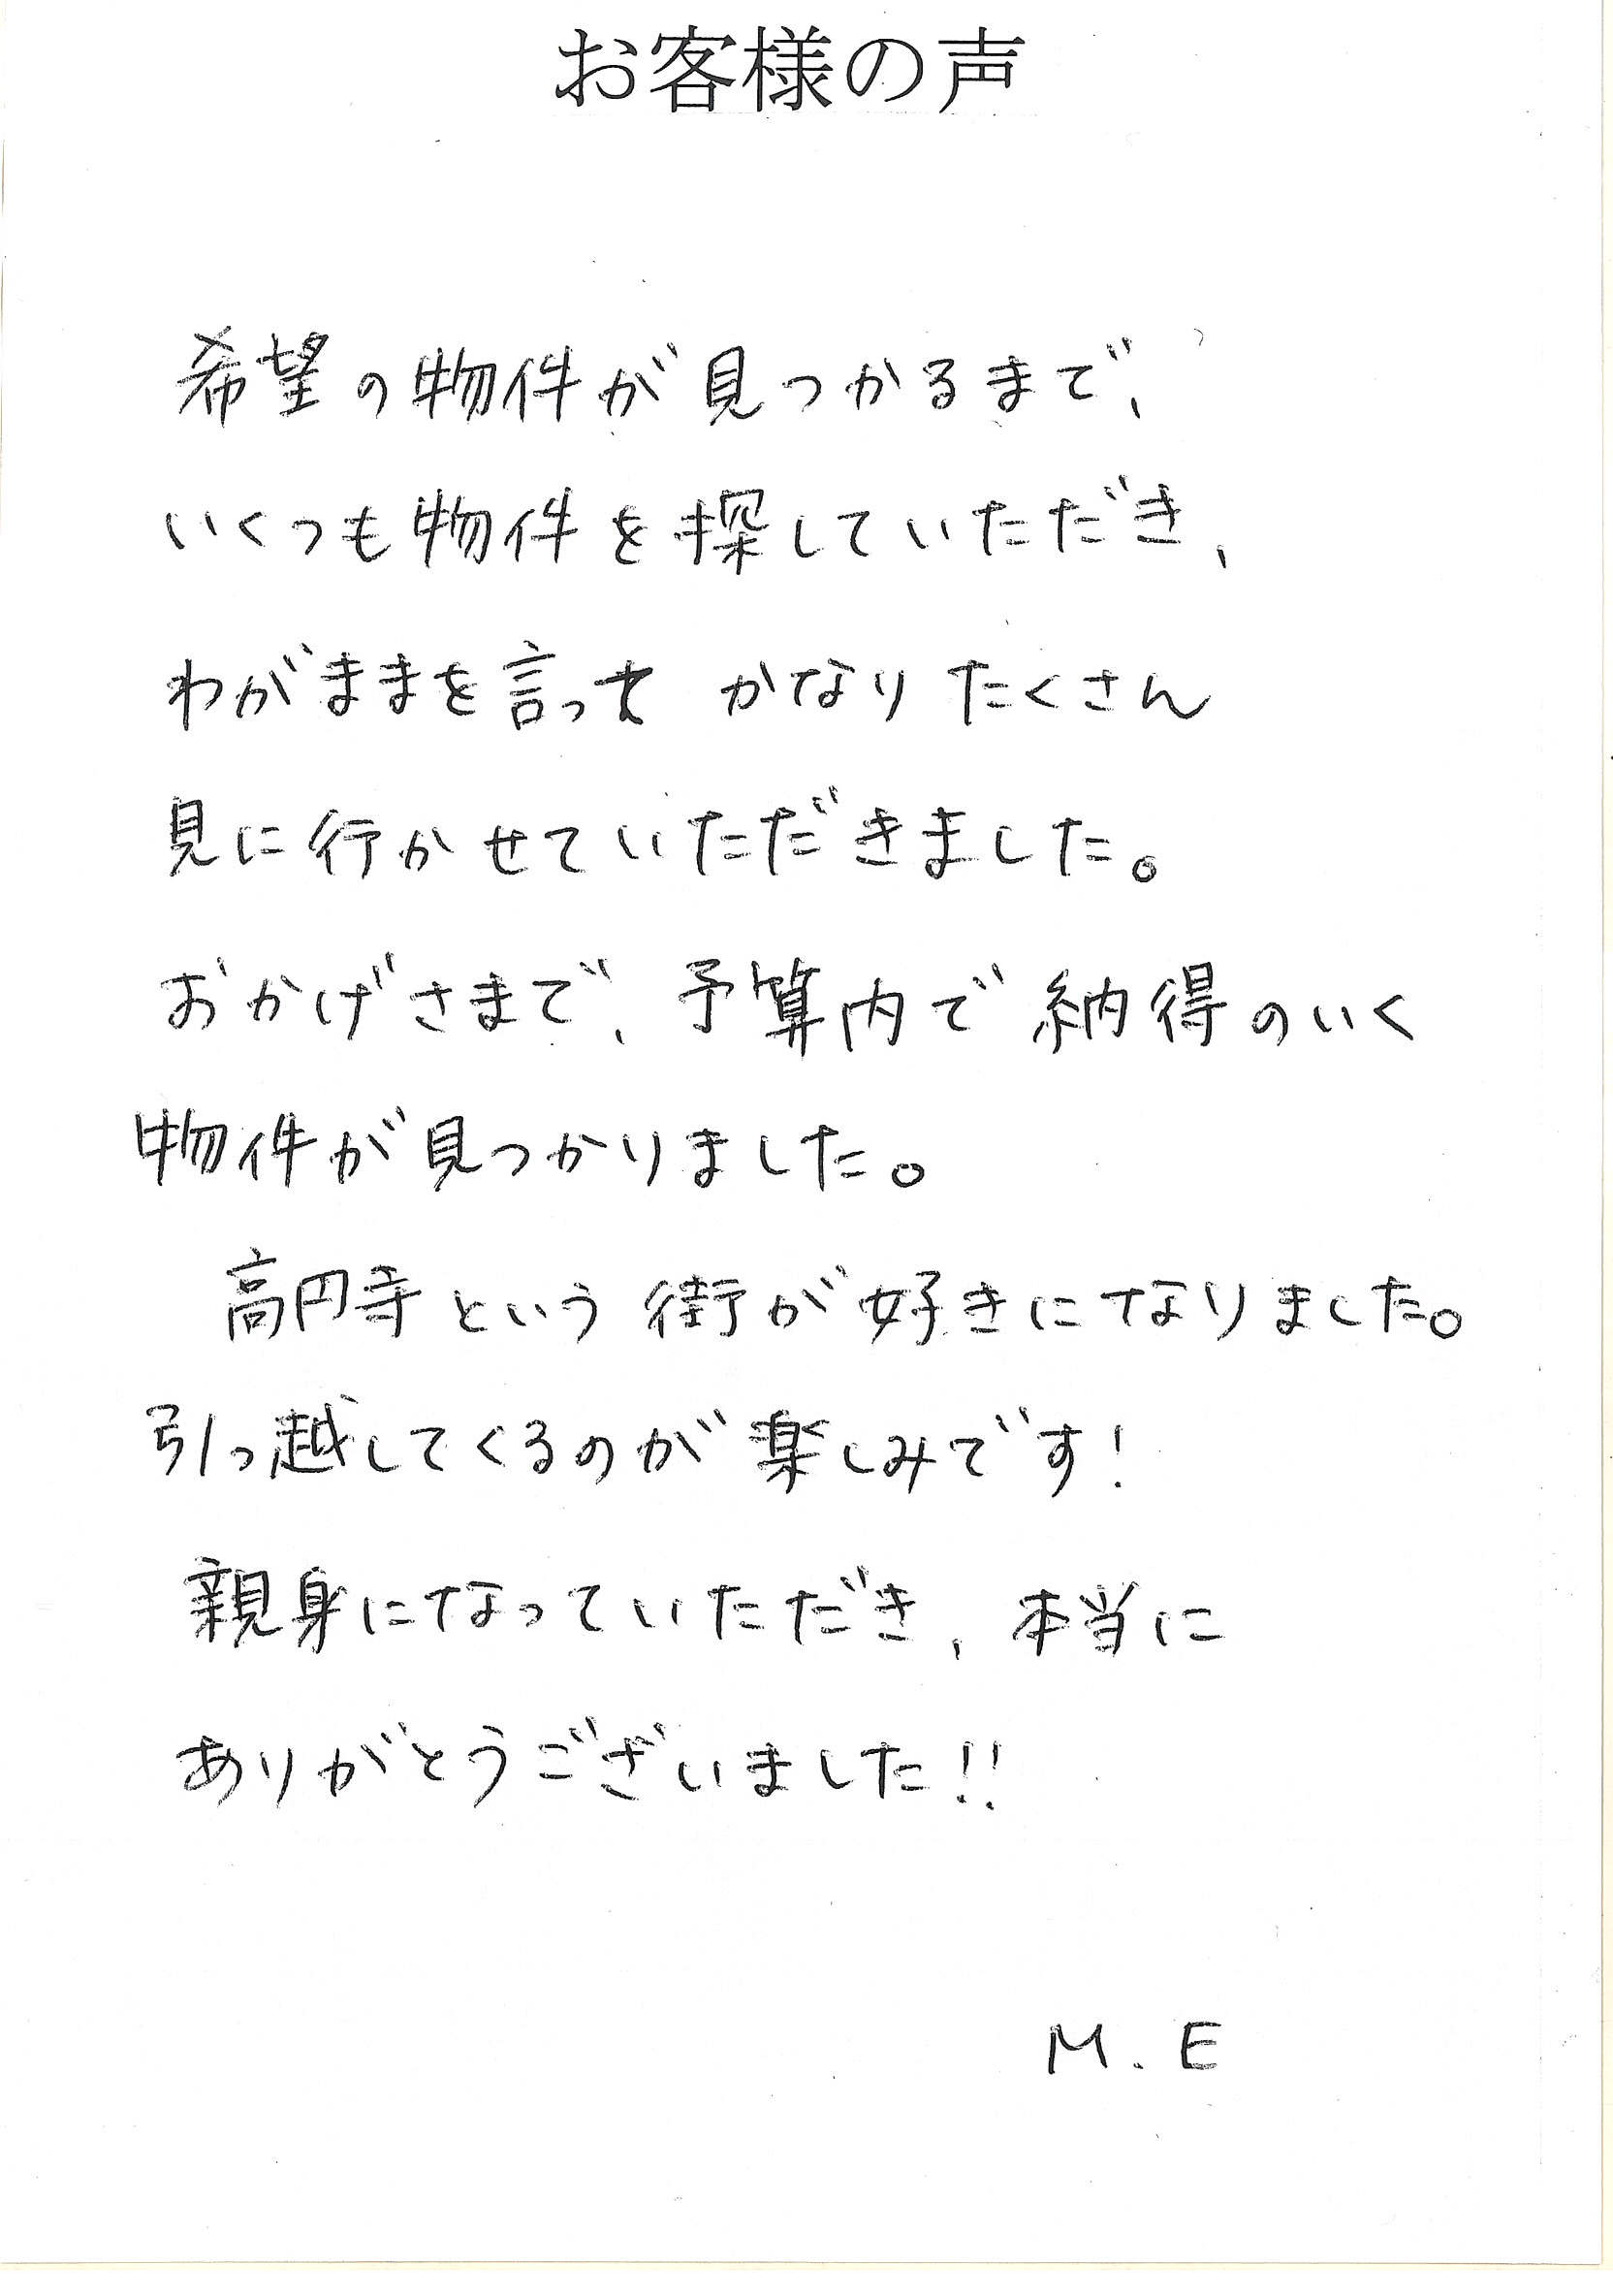 お客様の声
希望の物件が見つかるまで、
いくつも物件を探していただき、
わがままを言って かなり たくさん
見に行かせていただきました。
おかげさまで、予算内で納得のいく
物件が見つかりました。
高円寺という街が好きになりました。
引っ越してくるのが楽しみです!
親身になっていただき、本当に
ありがとうございました!!
M.E